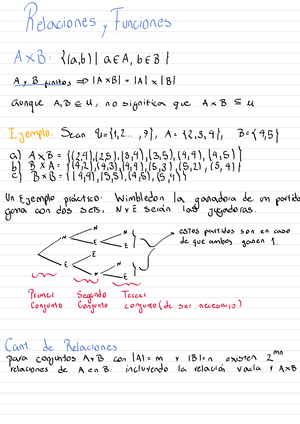 Relaciones y Funciones
A×B: {(a,b) | a∈A, b∈B}
A y B finitos ⇒ |A×B| = |A| × |B|
aunque A,B ⊆ U, no significa que A×B ⊆ U
Ejemplo. Sean U={1,2...,7}, A={2,3,4}, B={4,5}
a) A×B = {(2,4),(2,5),(3,4),(3,5),(4,4),(4,5)}
b) B×A = {(4,2),(4,3),(4,4),(5,3),(5,2),(5,4)}
c) B×B = {(4,4),(5,5),(4,5),(5,4)}
Un Ejemplo práctico. Wimbledon la ganadora de un partido
gana con dos sets, N y E serán las jugadoras.
N N N
E E
N N
E E E
estos partidos son en caso
de que ambas ganen 1.
Primer Segundo Tercer
Conjunto Conjunto conjunto (de ser necesario)
Cant. de Relaciones
para conjuntos A y B con |A|=m y |B|=n existen 2^mn
relaciones de A en B incluyendo la relación vacía y A×B